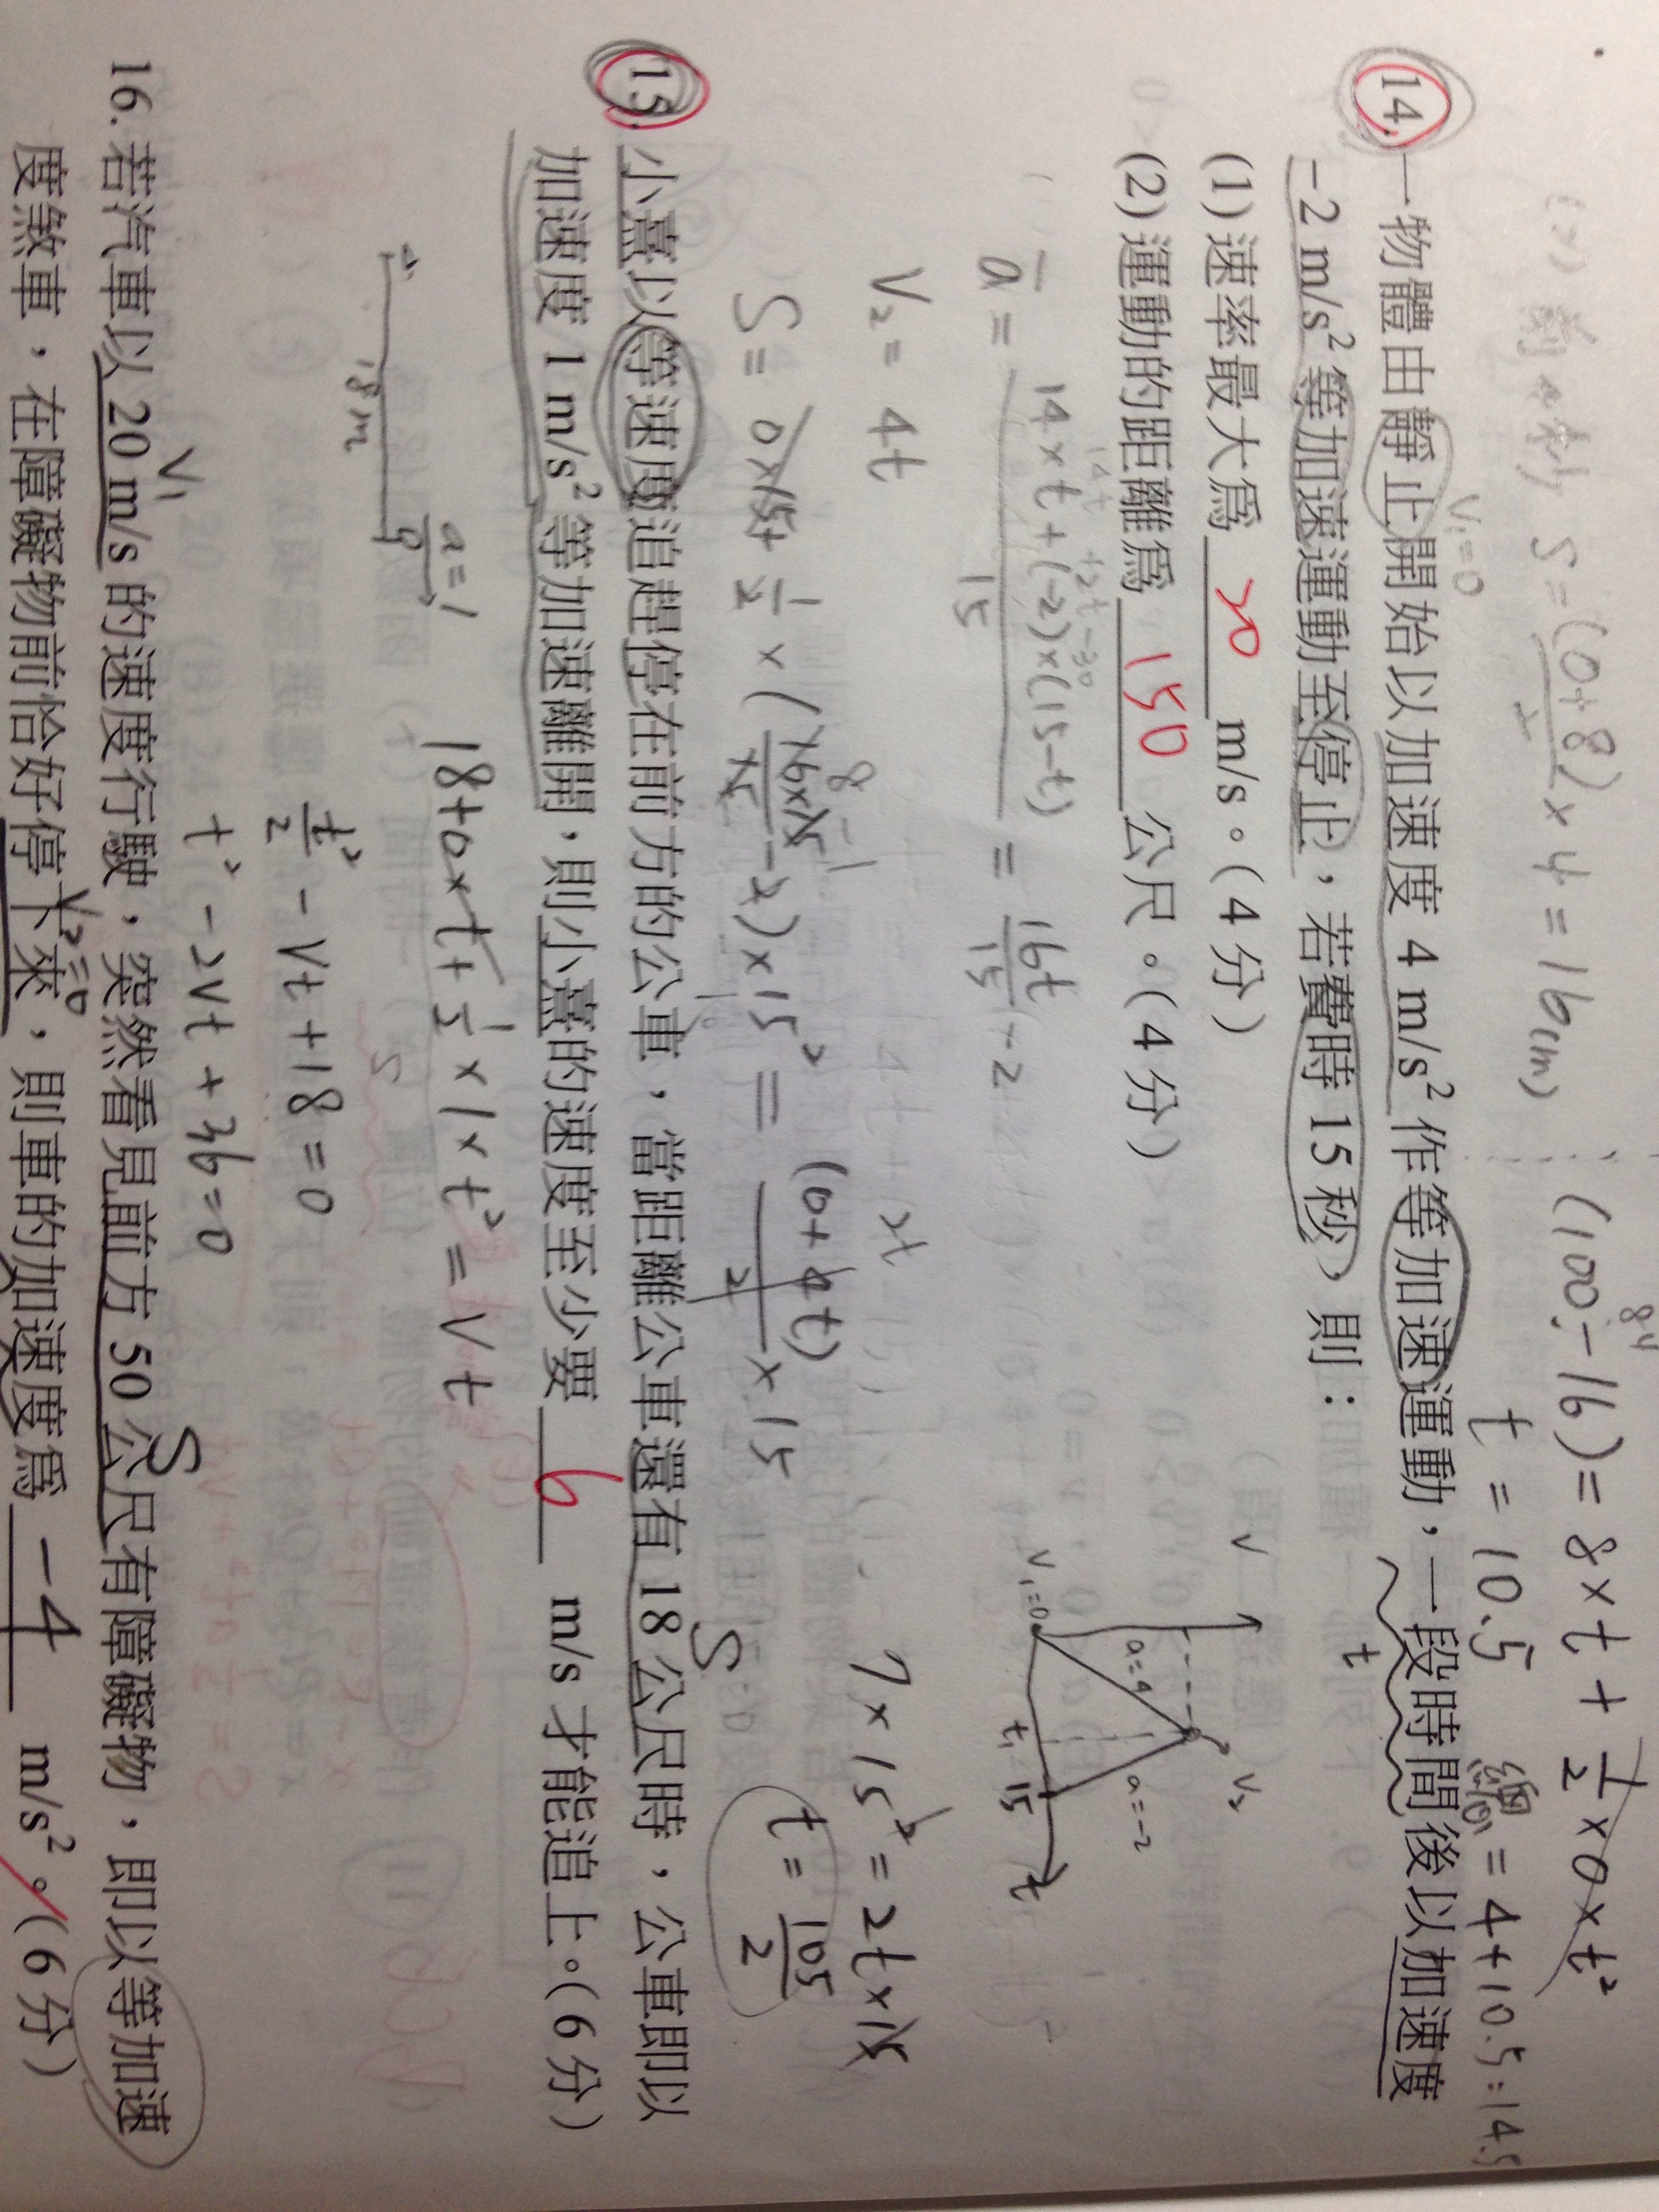 (2) 前4秒 S=(0+8)/2 ×4=16(m) (100-16)=8×t+1/2×0×t²
84
t=10.5 總 = 4+10.5=14.5
V₁=0
14.一物體由靜止開始以加速度 4 m/s² 作等加速運動，一段時間後以加速度
t
-2 m/s² 等加速運動至停止，若費時 15 秒，則：
(1)速率最大為 20 m/s。(4 分)
(2)運動的距離為 150 公尺。(4 分)
14t +2t-30
a = 14×t+(-2)×(15-t) / 15 = 16t/15 - 2
V V₂ a=4 a=-2 V₁=0 t₁ 15 t
V₂= 4t
7×15²=2t×15
S= 0×15+ 1/2 ×(16×15/15 -2)×15² = (0+4t)/2 ×15
8 2t
t= 105/2
S
15.小熹以等速度追趕停在前方的公車，當距離公車還有 18 公尺時，公車即以
加速度 1 m/s² 等加速離開，則小熹的速度至少要 6 m/s 才能追上。(6 分)
a=1
18m
18+0×t+1/2×1×t²=Vt
t²/2 -Vt+18=0
t²-2Vt+36=0
V₁ S
16.若汽車以 20 m/s 的速度行駛，突然看見前方 50 公尺有障礙物，即以等加速
V₂=0
度煞車，在障礙物前恰好停下來，則車的加速度為 -4 m/s²。(6 分)